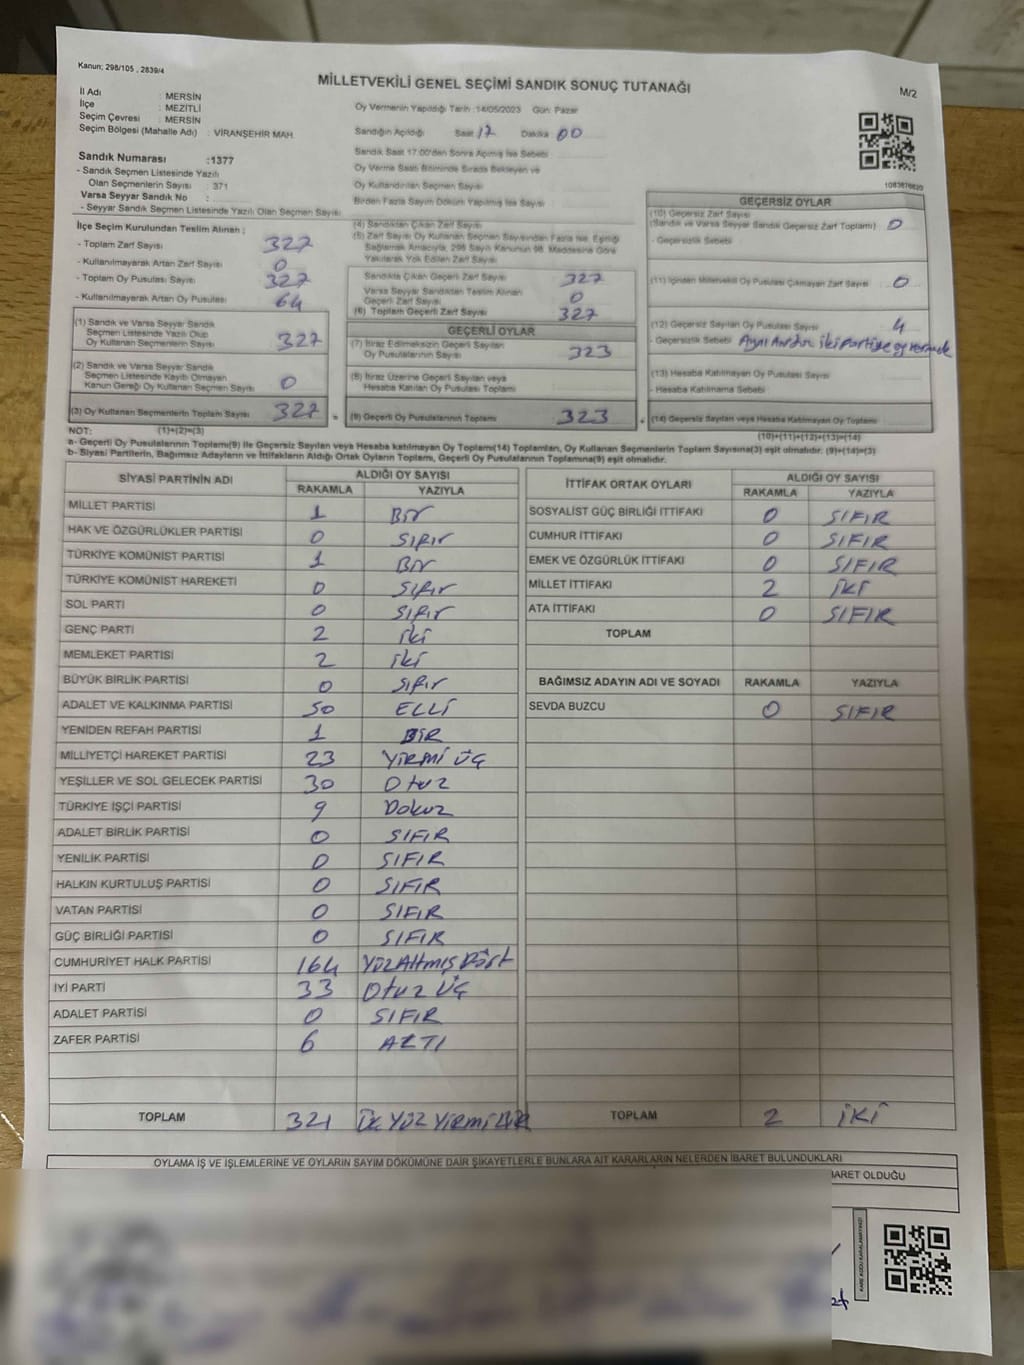 Kanun; 298/105 , 2839/4
MİLLETVEKİLİ GENEL SEÇİMİ SANDIK SONUÇ TUTANAĞI
M/2
İl Adı : MERSİN
İlçe : MEZİTLİ
Seçim Çevresi : MERSİN
Seçim Bölgesi (Mahalle Adı) : VİRANŞEHİR MAH.
Oy Vermenin Yapıldığı Tarih :14/05/2023 Gün: Pazar
Sandığın Açıldığı Saat 17 Dakika 00
Sandık Saat 17:00'den Sonra Açılmış İse Sebebi
Oy Verme Saati Bitiminde Sırada Bekleyen ve
Oy Kullandırılan Seçmen Sayısı
Birden Fazla Sayım Döküm Yapılmış İse Sayısı
Sandık Numarası :1377
- Sandık Seçmen Listesinde Yazılı
Olan Seçmenlerin Sayısı : 371
Varsa Seyyar Sandık No :
- Seyyar Sandık Seçmen Listesinde Yazılı Olan Seçmen Sayısı
1083876820
İlçe Seçim Kurulundan Teslim Alınan ;
- Toplam Zarf Sayısı 327
- Kullanılmayarak Artan Zarf Sayısı 0
- Toplam Oy Pusulası Sayısı 327
- Kullanılmayarak Artan Oy Pusulası 64
(1) Sandık ve Varsa Seyyar Sandık
Seçmen Listesinde Yazılı Olup
Oy Kullanan Seçmenlerin Sayısı 327
(2) Sandık ve Varsa Seyyar Sandık
Seçmen Listesinde Kayıtlı Olmayan
Kanun Gereği Oy Kullanan Seçmen Sayısı 0
(3) Oy Kullanan Seçmenlerin Toplam Sayısı 327
(1)+(2)=(3)
(4) Sandıktan Çıkan Zarf Sayısı
(5) Zarf Sayısı Oy Kullanan Seçmen Sayısından Fazla İse, Eşitliği
Sağlamak Amacıyla, 298 Sayılı Kanunun 98. Maddesine Göre
Yakılarak Yok Edilen Zarf Sayısı
Sandıkta Çıkan Geçerli Zarf Sayısı 327
Varsa Seyyar Sandıktan Teslim Alınan
Geçerli Zarf Sayısı 0
(6) Toplam Geçerli Zarf Sayısı 327
GEÇERLİ OYLAR
(7) İtiraz Edilmeksizin Geçerli Sayılan
Oy Pusulalarının Sayısı 323
(8) İtiraz Üzerine Geçerli Sayılan veya
Hesaba Katılan Oy Pusulası Toplamı
= (9) Geçerli Oy Pusulalarının Toplamı 323
GEÇERSİZ OYLAR
(10) Geçersiz Zarf Sayısı
(Sandık ve Varsa Seyyar Sandık Geçersiz Zarf Toplamı) 0
- Geçersizlik Sebebi
(11) İçinden Milletvekili Oy Pusulası Çıkmayan Zarf Sayısı 0
(12) Geçersiz Sayılan Oy Pusulası Sayısı 4
- Geçersizlik Sebebi Aynı Anda iki Partiye oy vermek
(13) Hesaba Katılmayan Oy Pusulası Sayısı
- Hesaba Katılmama Sebebi
+ (14) Geçersiz Sayılan veya Hesaba Katılmayan Oy Toplamı
(10)+(11)+(12)+(13)=(14)
NOT:
a- Geçerli Oy Pusulalarının Toplamı(9) ile Geçersiz Sayılan veya Hesaba katılmayan Oy Toplamı(14) Toplamları, Oy Kullanan Seçmenlerin Toplam Sayısına(3) eşit olmalıdır. (9)+(14)=(3)
b- Siyasi Partilerin, Bağımsız Adayların ve İttifakların Aldığı Ortak Oyların Toplamı, Geçerli Oy Pusulalarının Toplamına(9) eşit olmalıdır.
SİYASİ PARTİNİN ADI ALDIĞI OY SAYISI
RAKAMLA YAZIYLA
MİLLET PARTİSİ 1 Bir
HAK VE ÖZGÜRLÜKLER PARTİSİ 0 Sıfır
TÜRKİYE KOMÜNİST PARTİSİ 1 Bir
TÜRKİYE KOMÜNİST HAREKETİ 0 Sıfır
SOL PARTİ 0 Sıfır
GENÇ PARTİ 2 iki
MEMLEKET PARTİSİ 2 iki
BÜYÜK BİRLİK PARTİSİ 0 Sıfır
ADALET VE KALKINMA PARTİSİ 50 ELLİ
YENİDEN REFAH PARTİSİ 1 BİR
MİLLİYETÇİ HAREKET PARTİSİ 23 YİRMİ ÜÇ
YEŞİLLER VE SOL GELECEK PARTİSİ 30 Otuz
TÜRKİYE İŞÇİ PARTİSİ 9 Dokuz
ADALET BİRLİK PARTİSİ 0 SIFIR
YENİLİK PARTİSİ 0 SIFIR
HALKIN KURTULUŞ PARTİSİ 0 SIFIR
VATAN PARTİSİ 0 SIFIR
GÜÇ BİRLİĞİ PARTİSİ 0 SIFIR
CUMHURİYET HALK PARTİSİ 164 YÜZALTMIŞ DÖRT
İYİ PARTİ 33 Otuz ÜÇ
ADALET PARTİSİ 0 SIFIR
ZAFER PARTİSİ 6 ALTI
TOPLAM 321 ÜÇ YÜZ YİRMİ BİR
İTTİFAK ORTAK OYLARI ALDIĞI OY SAYISI
RAKAMLA YAZIYLA
SOSYALİST GÜÇ BİRLİĞİ İTTİFAKI 0 SIFIR
CUMHUR İTTİFAKI 0 SIFIR
EMEK VE ÖZGÜRLÜK İTTİFAKI 0 SIFIR
MİLLET İTTİFAKI 2 İKİ
ATA İTTİFAKI 0 SIFIR
TOPLAM
BAĞIMSIZ ADAYIN ADI VE SOYADI RAKAMLA YAZIYLA
SEVDA BUZCU 0 SIFIR
TOPLAM 2 İKİ
OYLAMA İŞ VE İŞLEMLERİNE VE OYLARIN SAYIM DÖKÜMÜNE DAİR ŞİKAYETLERLE BUNLARA AİT KARARLARIN NELERDEN İBARET BULUNDUKLARI
BARET OLDUĞU